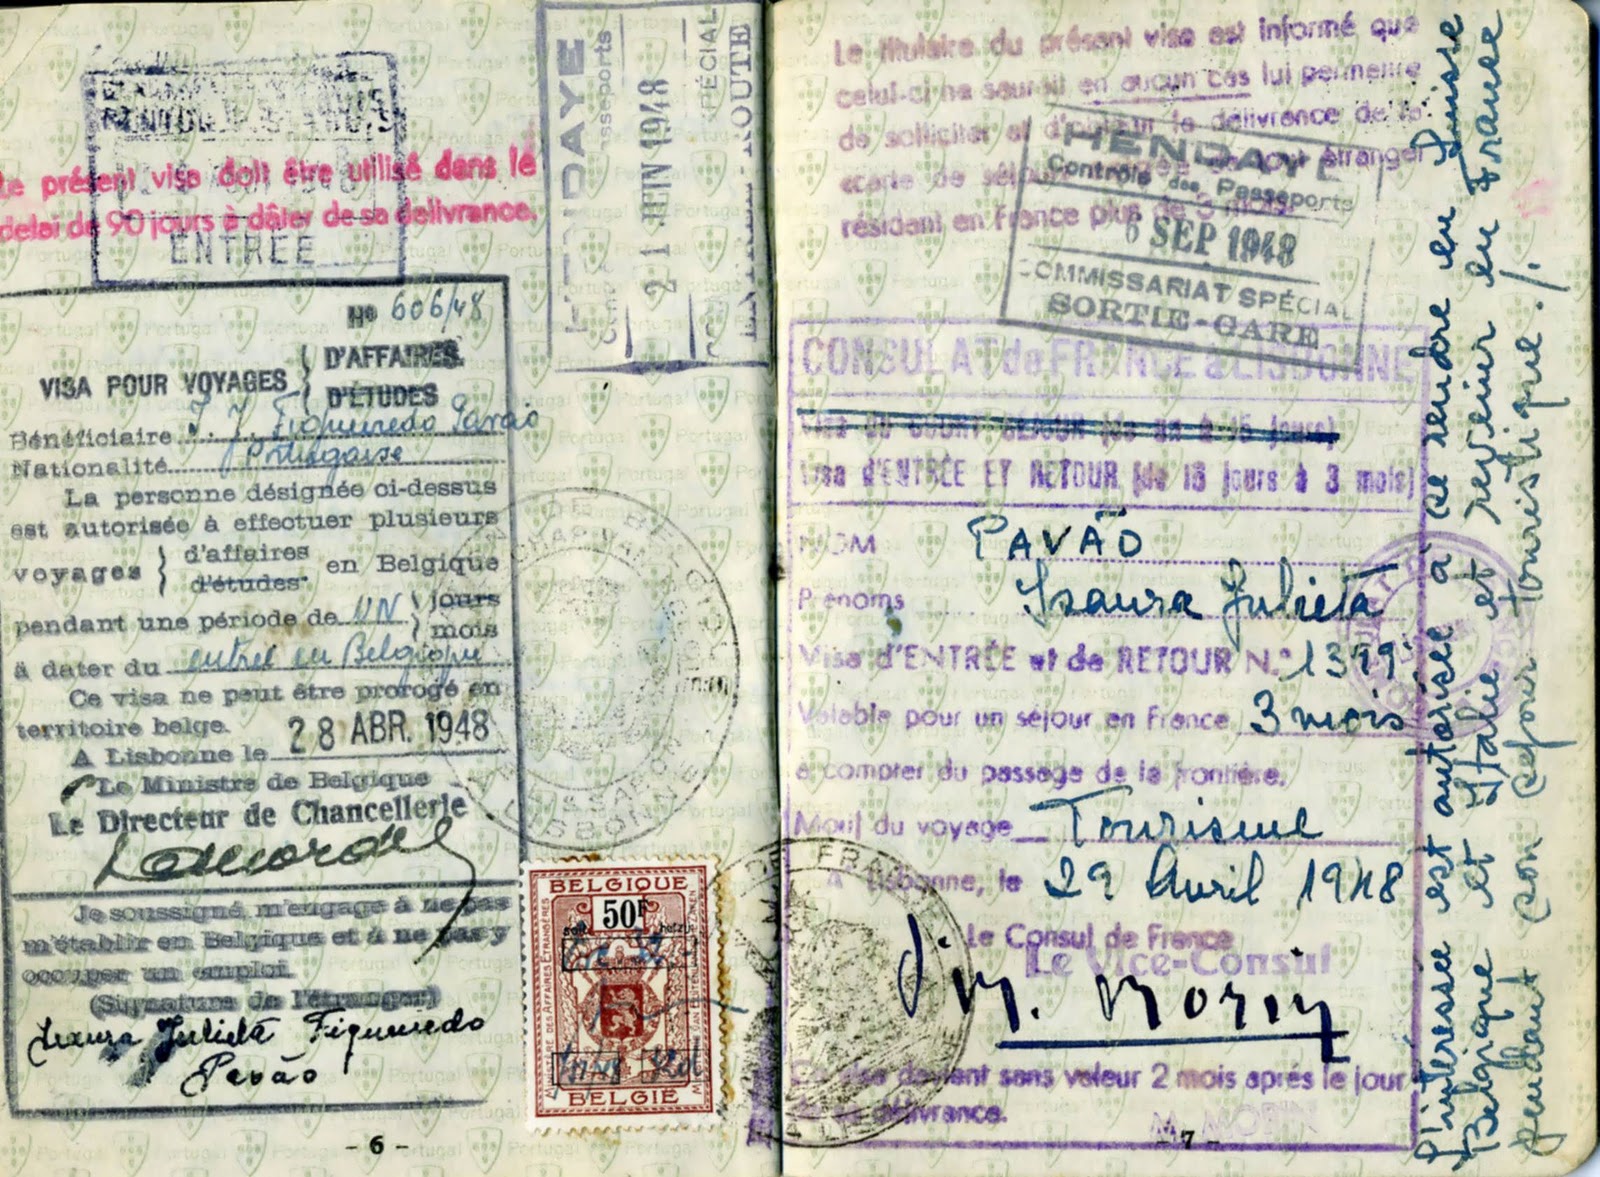 Le présent visa doit être utilisé dans le
délai de 90 jours à dâter de sa délivrance.
ENTRÉE
HENDAYE
21 JUIN 1948
SPÉCIAL
ROUTE
Nº 606/48
VISA POUR VOYAGES
D'AFFAIRES.
D'ÉTUDES
Bénéficiaire I. J. Figueiredo Pavão
Nationalité Portugaise
La personne désignée ci-dessus
est autorisée à effectuer plusieurs
voyages d'affaires d'études en Belgique
pendant une période de UN jours mois
à dater du entrée en Belgique
Ce visa ne peut être prorogé en
territoire belge.
A Lisbonne le 28 ABR. 1948
Le Ministre de Belgique
Le Directeur de Chancellerie
Je soussigné m'engage à ne pas
m'établir en Belgique et à ne pas y
occuper un emploi.
(Signature de l'étranger)
Isaura Julieta Figueiredo
Pavão
BELGIQUE
50F
BELGIE
- 6 -
Le titulaire du présent visa est informé que
celui-ci ne saurait en aucun cas lui permettre
de solliciter et d'obtenir la délivrance de la
carte de séjour étranger
résidant en France plus de 3 mois.
HENDAYE
Contrôle des Passeports
6 SEP 1948
COMMISSARIAT SPÉCIAL
SORTIE-GARE
CONSULAT de FRANCE à LISBONNE
Visa DU COURT SÉJOUR (de un à 15 jours)
Visa d'ENTRÉE ET RETOUR (de 15 jours à 3 mois)
NOM PAVÃO
Prénoms Isaura Julieta
Visa d'ENTRÉE et de RETOUR N.° 1399
Valable pour un séjour en France 3 mois
à compter du passage de la frontière.
Motif du voyage Tourisme
A Lisbonne, le 29 Avril 1948
Le Consul de France
Le Vice-Consul
M. Morin
Ce visa devient sans valeur 2 mois après le jour
de sa délivrance.
M. MORIN
- 7 -
L'intéressée est autorisée à se rendre en Suisse
Belgique et Italie et revenir en France
pendant son séjour touristique./.